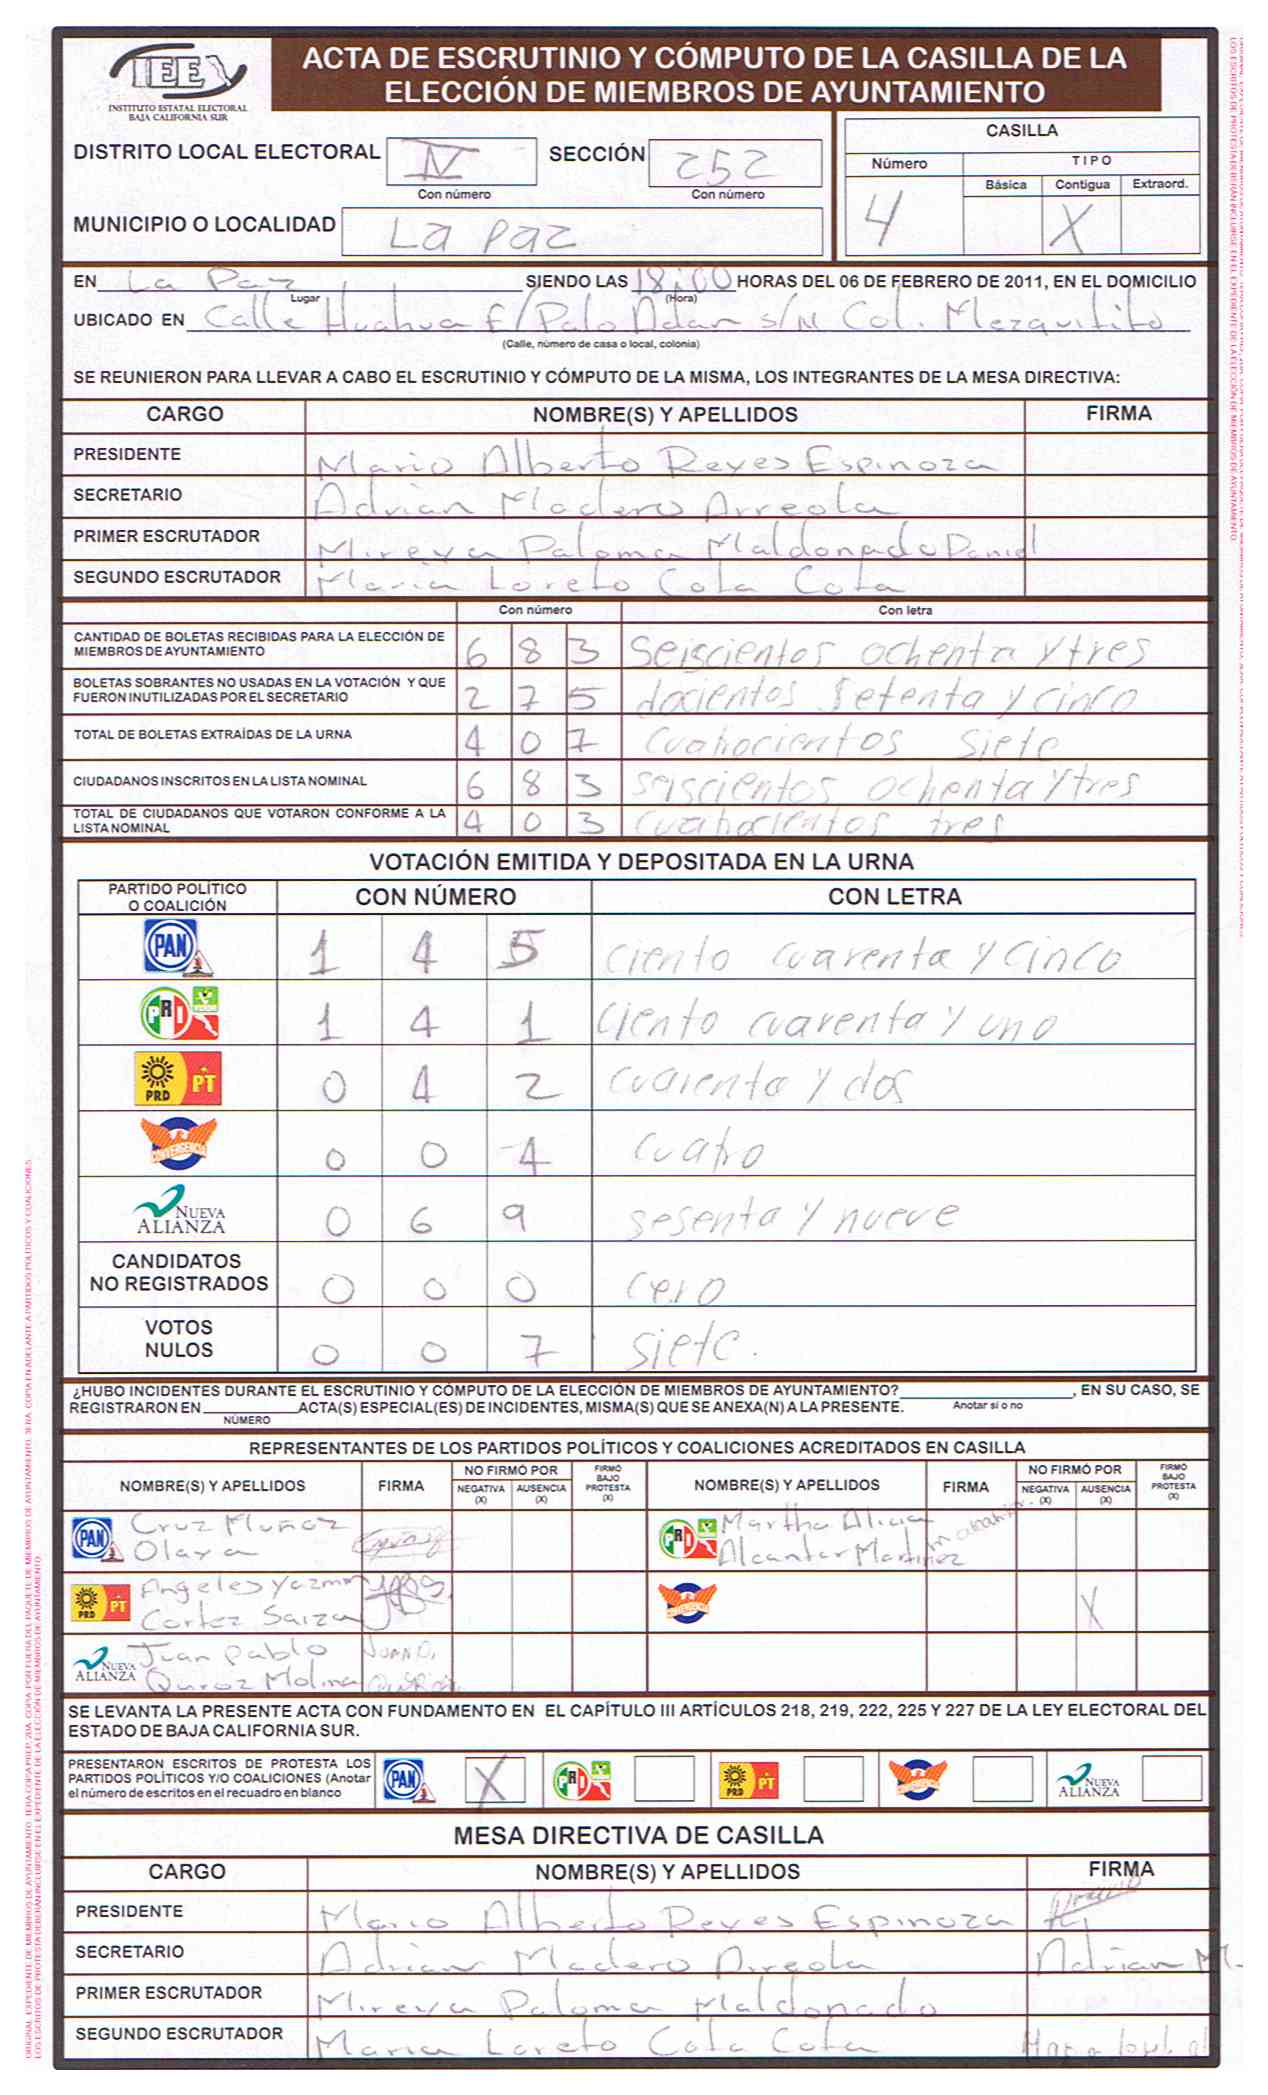 IEE
INSTITUTO ESTATAL ELECTORAL
BAJA CALIFORNIA SUR
ACTA DE ESCRUTINIO Y CÓMPUTO DE LA CASILLA DE LA
ELECCIÓN DE MIEMBROS DE AYUNTAMIENTO
DISTRITO LOCAL ELECTORAL IV SECCIÓN 252
Con número Con número
MUNICIPIO O LOCALIDAD La paz
CASILLA
Número TIPO
Básica Contigua Extraord.
4 X
EN La Paz SIENDO LAS 18:00 HORAS DEL 06 DE FEBRERO DE 2011, EN EL DOMICILIO
Lugar (Hora)
UBICADO EN Calle Huahua E/Palo Adan s/N Col. Mezquitito
(Calle, número de casa o local, colonia)
SE REUNIERON PARA LLEVAR A CABO EL ESCRUTINIO Y CÓMPUTO DE LA MISMA, LOS INTEGRANTES DE LA MESA DIRECTIVA:
CARGO NOMBRE(S) Y APELLIDOS FIRMA
PRESIDENTE Mario Alberto Reyes Espinoza
SECRETARIO Adrian Madero Arreola
PRIMER ESCRUTADOR Mireya Paloma Maldonado Daniel
SEGUNDO ESCRUTADOR Maria Loreto Cota Cota
Con número Con letra
CANTIDAD DE BOLETAS RECIBIDAS PARA LA ELECCIÓN DE
MIEMBROS DE AYUNTAMIENTO 6 8 3 Seiscientos ochenta y tres
BOLETAS SOBRANTES NO USADAS EN LA VOTACIÓN Y QUE
FUERON INUTILIZADAS POR EL SECRETARIO 2 7 5 docientos setenta y cinco
TOTAL DE BOLETAS EXTRAÍDAS DE LA URNA 4 0 7 cuatrocientos siete
CIUDADANOS INSCRITOS EN LA LISTA NOMINAL 6 8 3 seiscientos ochenta y tres
TOTAL DE CIUDADANOS QUE VOTARON CONFORME A LA
LISTA NOMINAL 4 0 3 cuatrocientos tres
VOTACIÓN EMITIDA Y DEPOSITADA EN LA URNA
PARTIDO POLÍTICO
O COALICIÓN CON NÚMERO CON LETRA
PAN 1 4 5 ciento cuarenta y cinco
PRI 1 4 1 ciento cuarenta y uno
PRD PT 0 4 2 cuarenta y dos
CONVERGENCIA 0 0 4 cuatro
NUEVA ALIANZA 0 6 9 sesenta y nueve
CANDIDATOS
NO REGISTRADOS 0 0 0 cero
VOTOS
NULOS 0 0 7 siete.
¿HUBO INCIDENTES DURANTE EL ESCRUTINIO Y CÓMPUTO DE LA ELECCIÓN DE MIEMBROS DE AYUNTAMIENTO? , EN SU CASO, SE
REGISTRARON EN ACTA(S) ESPECIAL(ES) DE INCIDENTES, MISMA(S) QUE SE ANEXA(N) A LA PRESENTE. Anotar si o no
NÚMERO
REPRESENTANTES DE LOS PARTIDOS POLÍTICOS Y COALICIONES ACREDITADOS EN CASILLA
NOMBRE(S) Y APELLIDOS FIRMA NO FIRMÓ POR NEGATIVA (X) AUSENCIA (X) FIRMÓ BAJO PROTESTA (X) NOMBRE(S) Y APELLIDOS FIRMA NO FIRMÓ POR NEGATIVA (X) AUSENCIA (X) FIRMÓ BAJO PROTESTA (X)
PAN Cruz Muñoz
Olaya
PRI Martha Alicia
Alcantar Martinez
PRD PT Angeles Yazmin
Cortez Saiza
CONVERGENCIA X
NUEVA ALIANZA Juan Pablo
Quiroz Molina
SE LEVANTA LA PRESENTE ACTA CON FUNDAMENTO EN EL CAPÍTULO III ARTÍCULOS 218, 219, 222, 225 Y 227 DE LA LEY ELECTORAL DEL
ESTADO DE BAJA CALIFORNIA SUR.
PRESENTARON ESCRITOS DE PROTESTA LOS
PARTIDOS POLÍTICOS Y/O COALICIONES (Anotar
el número de escritos en el recuadro en blanco
PAN X PRI PRD PT CONVERGENCIA NUEVA ALIANZA
MESA DIRECTIVA DE CASILLA
CARGO NOMBRE(S) Y APELLIDOS FIRMA
PRESIDENTE Mario Alberto Reyes Espinoza
SECRETARIO Adrian Madero Arreola Adrian M.
PRIMER ESCRUTADOR Mireya Paloma Maldonado
SEGUNDO ESCRUTADOR Maria Loreto Cota Cota